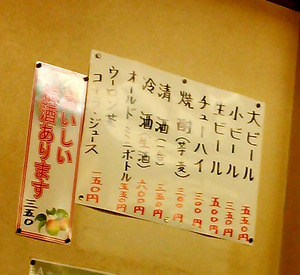 大ビール 五五〇円
小ビール 三五〇円
生ビール 五〇〇円
チューハイ 三〇〇円
焼酎(芋・麦) 三〇〇円
清酒(一合) 三五〇円
冷酒(生酒) 六〇〇円
オールドミニボトル 五五〇円
ウーロン茶
コーラ・ジュース 一五〇円
おいしい
梅酒あります
三五〇